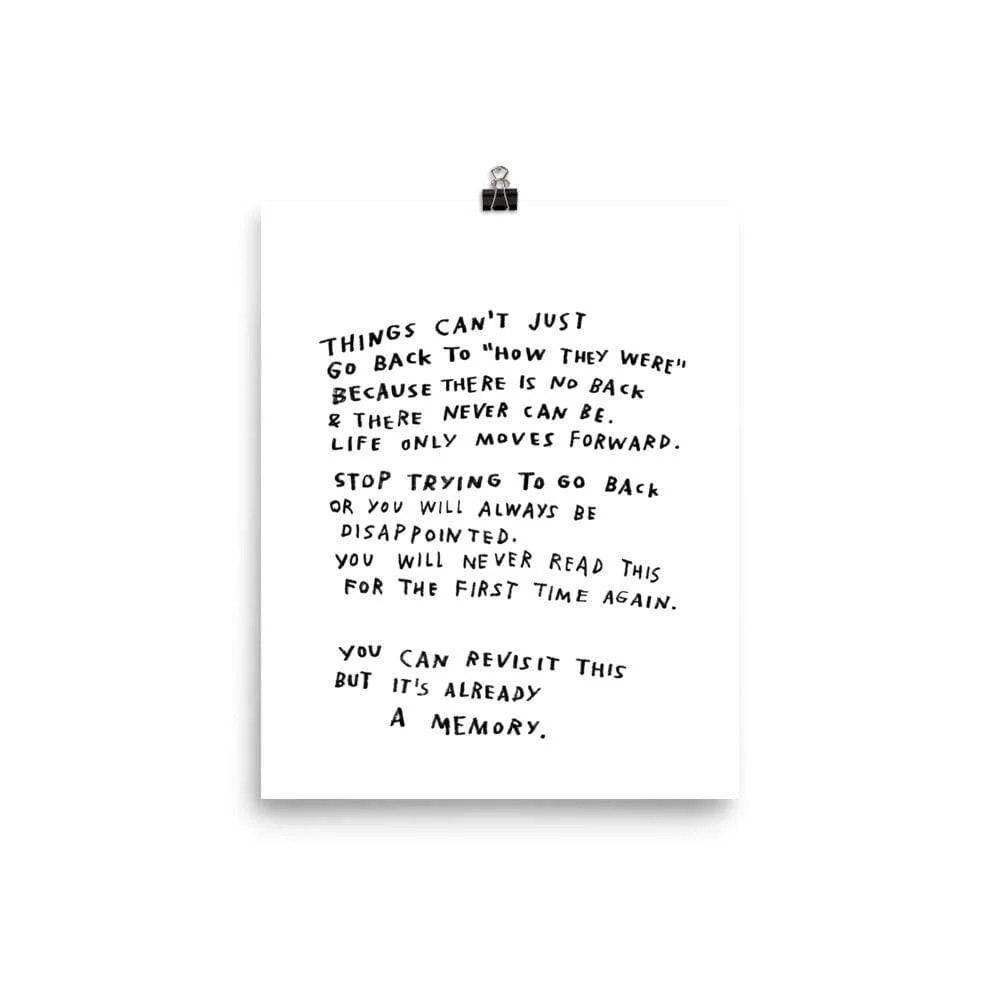 THINGS CAN'T JUST
GO BACK TO "HOW THEY WERE"
BECAUSE THERE IS NO BACK
& THERE NEVER CAN BE.
LIFE ONLY MOVES FORWARD.
STOP TRYING TO GO BACK
OR YOU WILL ALWAYS BE
DISAPPOINTED.
YOU WILL NEVER READ THIS
FOR THE FIRST TIME AGAIN.
YOU CAN REVISIT THIS
BUT IT'S ALREADY
A MEMORY.